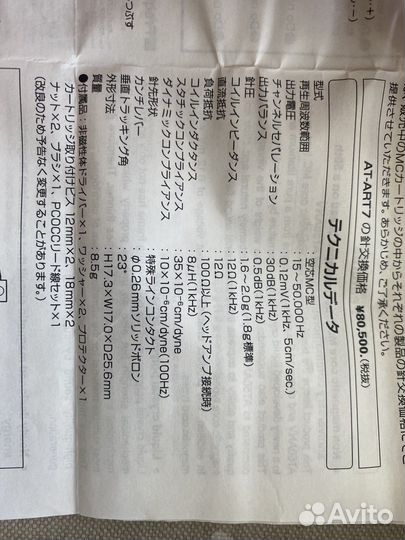 つぶす
販売中のMCカートリッジの中からそれぞれの製品の針交換価格にて
提供させていただきます。あらかじめ、ご了承ください。
AT-ART7 の針交換価格 ¥80,500.(税抜)
テクニカルデータ
型式 : 空芯MC型
再生周波数範囲 : 15~50,000Hz
出力電圧 : 0.12mV(1kHz、5cm/sec.)
チャンネルセパレーション : 30dB(1kHz)
出力バランス : 0.5dB(1kHz)
針圧 : 1.6~2.0g(1.8g標準)
コイルインピーダンス : 12Ω(1kHz)
直流抵抗 : 12Ω
負荷抵抗 : 100Ω以上(ヘッドアンプ接続時)
コイルインダクタンス : 8μH(1kHz)
スタチックコンプライアンス : 35×10-6cm/dyne
ダイナミックコンプライアンス : 10×10-6cm/dyne(100Hz)
針先形状 : 特殊ラインコンタクト
カンチレバー : φ0.26mmソリッドボロン
垂直トラッキング角 : 23°
外形寸法 : H17.3×W17.0×D25.6mm
質量 : 8.5g
●付属品:非磁性体ドライバー×1、ワッシャー×2、プロテクター×1
カートリッジ取り付けビス 12mm×2、18mm×2
ナット×2、ブラシ×1、PCOCCリード線セット×1
(改良のため予告なく変更することがあります。)
Avito